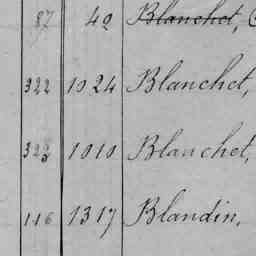 87 42 Blanchet,
322 1024 Blanchet,
323 1010 Blanchet,
116 1317 Blandin,